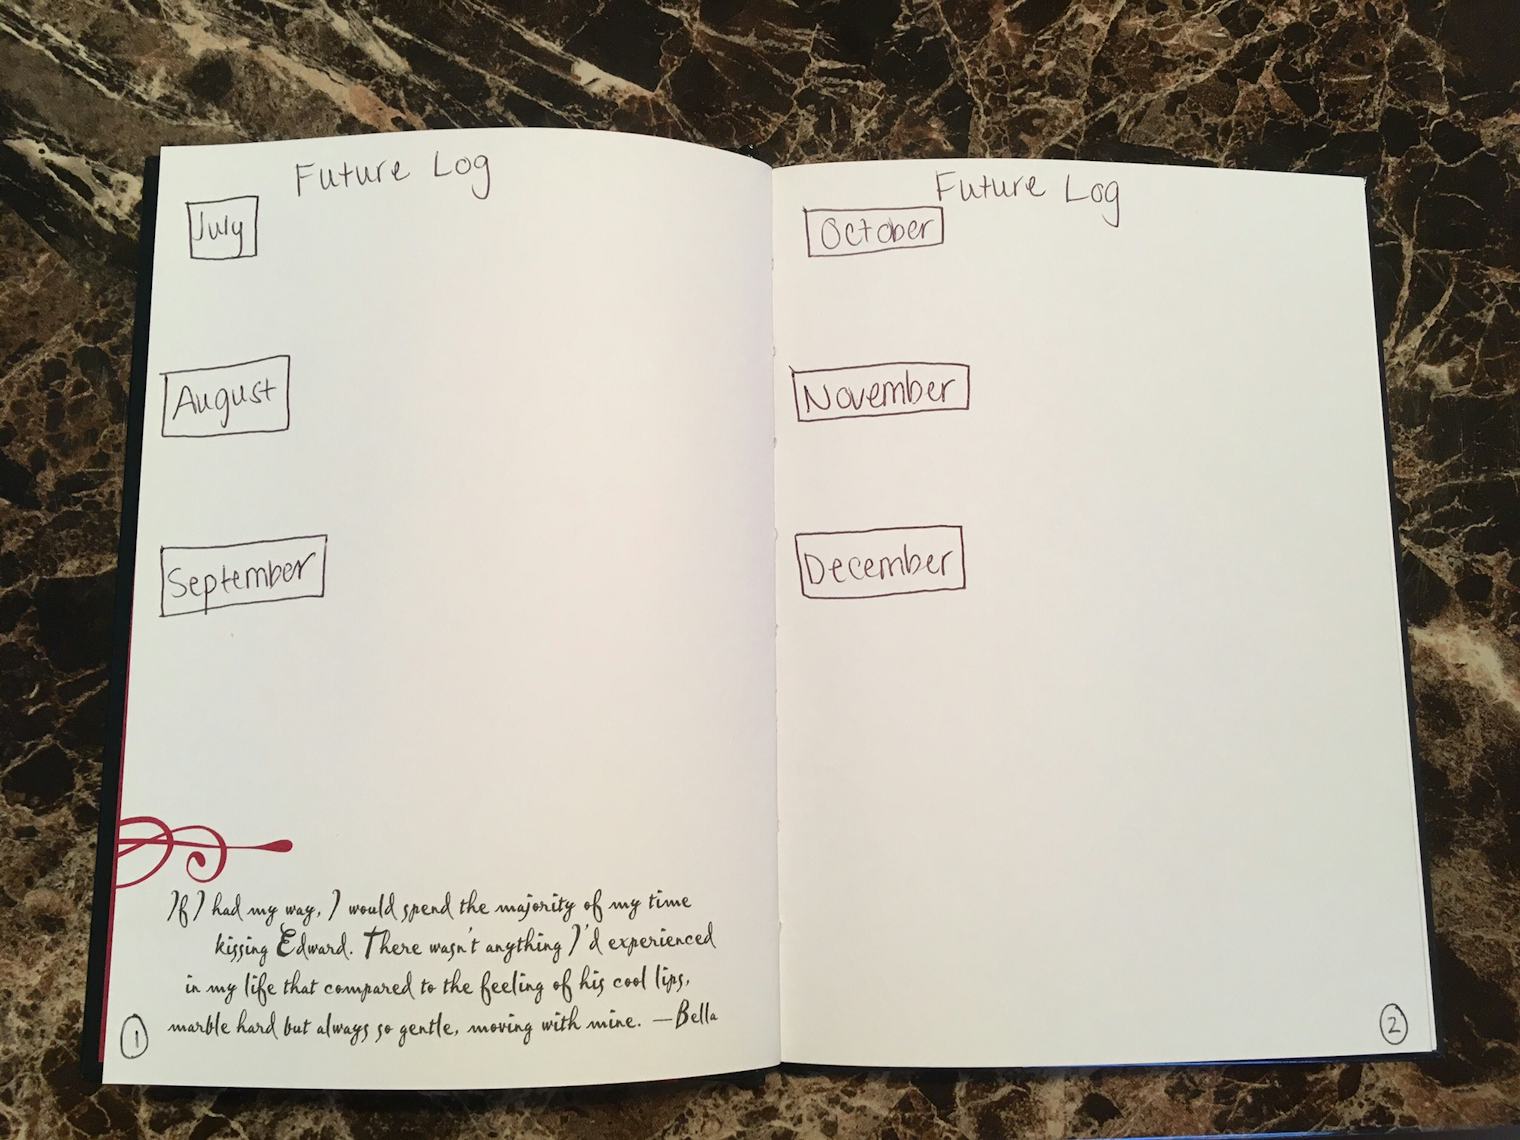 Future Log
July
August
September
If I had my way, I would spend the majority of my time
kissing Edward. There wasn't anything I'd experienced
in my life that compared to the feeling of his cool lips,
marble hard but always so gentle, moving with mine. —Bella
1
Future Log
October
November
December
2